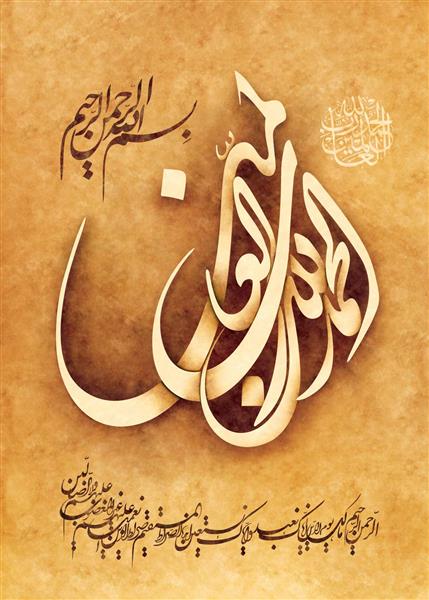 بسم الله الرحمن الرحيم
الحمد لله رب العالمين
الحمد لله رب العالمين
الرحمن الرحيم مالك يوم الدين إياك نعبد وإياك نستعين اهدنا الصراط المستقيم صراط الذين أنعمت عليهم غير المغضوب عليهم ولا الضالين